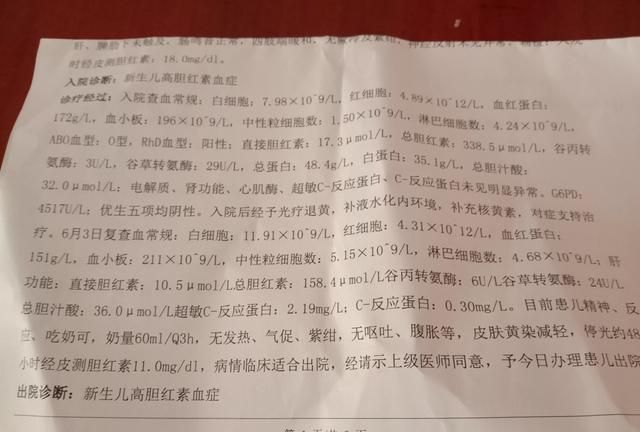 肝、脾肋下未触及，肠鸣音正常，四肢端暖和，无
时经皮测胆红素：18.0mg/dl。
入院诊断：新生儿高胆红素血症
诊疗经过：入院查血常规：白细胞：7.98×10^9/L，红细胞：4.89×10^12/L，血红蛋白：
172g/L，血小板：196×10^9/L，中性粒细胞数：1.50×10^9/L，淋巴细胞数：4.24×10^9/L，
ABO血型：O型，RhD血型：阳性；直接胆红素：17.3μmol/L，总胆红素：338.5μmol/L，谷丙转
氨酶：3U/L，谷草转氨酶：29U/L，总蛋白：48.4g/L，白蛋白：35.1g/L，总胆汁酸：
32.0μmol/L；电解质、肾功能、心肌酶、超敏C-反应蛋白、C-反应蛋白未见明显异常。G6PD：
4517U/L；优生五项均阴性。入院后经予光疗退黄，补液水化内环境，补充核黄素，对症支持治
疗。6月3日复查血常规：白细胞：11.91×10^9/L，红细胞：4.31×10^12/L，血红蛋白：
151g/L，血小板：211×10^9/L，中性粒细胞数：5.15×10^9/L，淋巴细胞数：4.68×10^9/L；肝
功能：直接胆红素：10.5μmol/L总胆红素：158.4μmol/L谷丙转氨酶：6U/L谷草转氨酶：24U/L
总胆汁酸：36.0μmol/L超敏C-反应蛋白：2.19mg/L；C-反应蛋白：0.30mg/L。目前患儿精神、反
应、吃奶可，奶量60ml/Q3h，无发热、气促、紫绀，无呕吐、腹胀等，皮肤黄染减轻，停光约48
小时经皮测胆红素11.0mg/dl，病情临床适合出院，经请示上级医师同意，予今日办理患儿出院
出院诊断：新生儿高胆红素血症